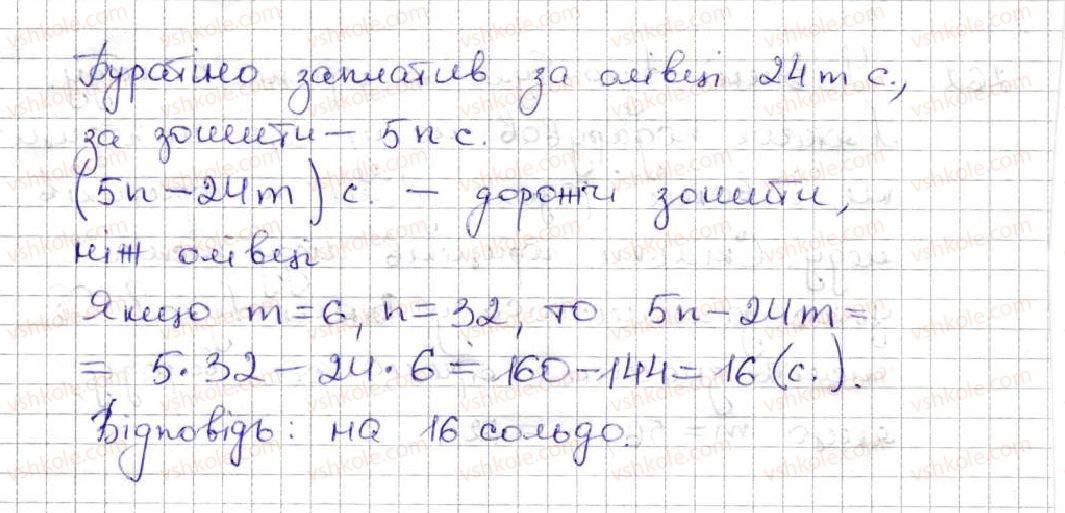 Буратіно заплатив за олівці 24m с.,
за зошити – 5n с.
(5n – 24m) с. – дорожчі зошити,
ніж олівці
Якщо m = 6, n = 32, то 5n – 24m =
= 5 · 32 – 24 · 6 = 160 – 144 = 16 (с.).
Відповідь: на 16 сольдо.